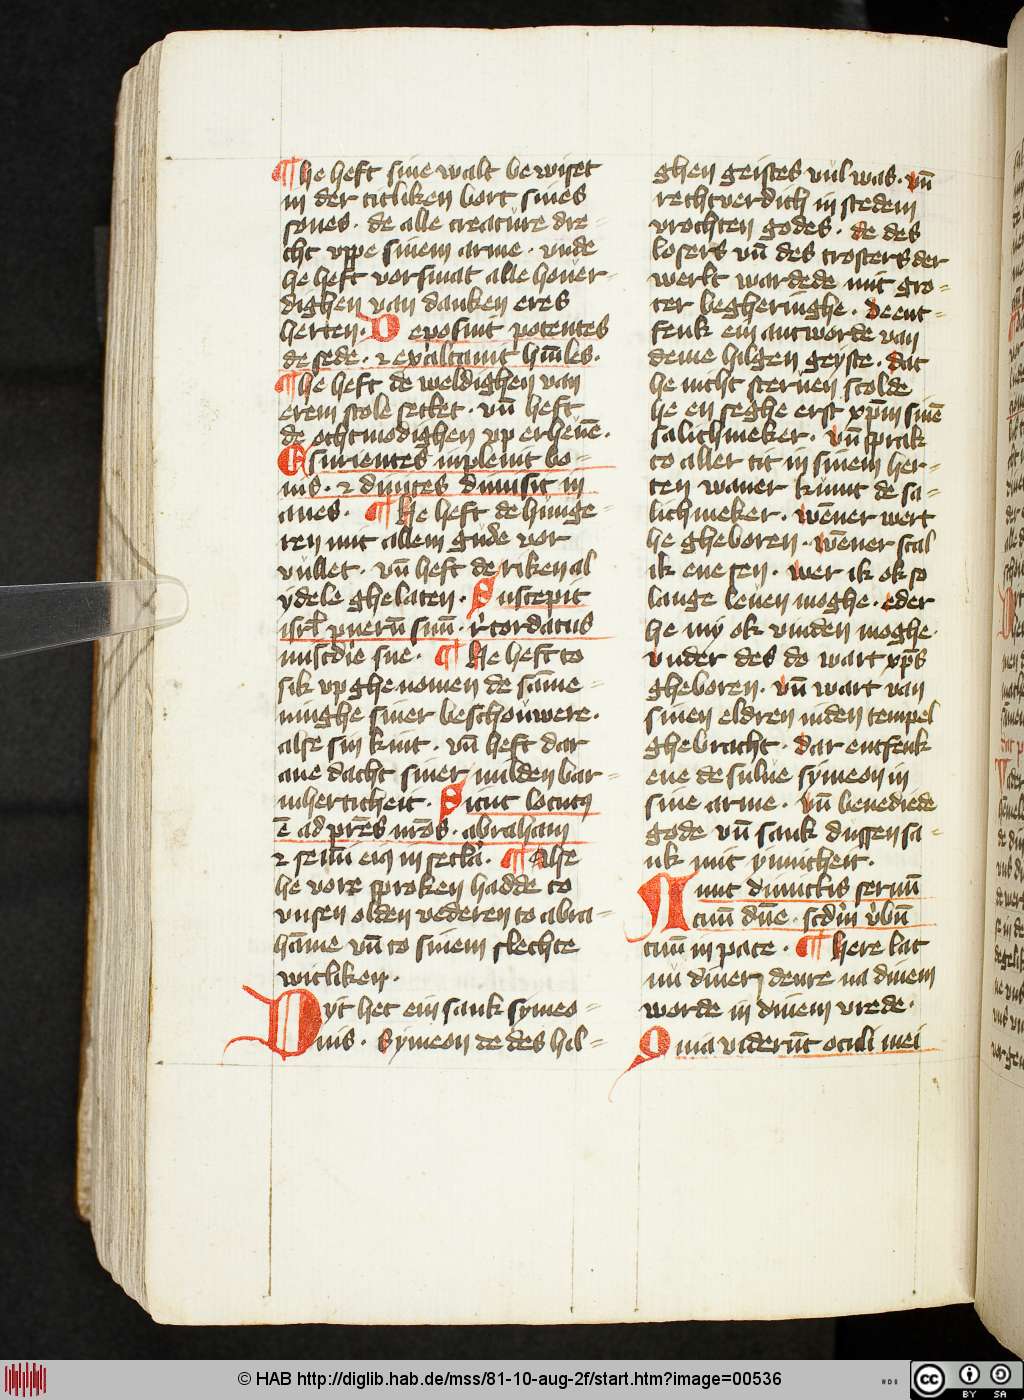 ¶ he heft sine walt bewiset
in der titliken bort sines
sones · de alle creature dre-
cht vppe sinem arme · vnde
he heft vorsmat alle houer-
dighen van danken eres
herten · Deposuit potentes
de sede · ⁊ exaltauit hu̅iles ·
¶ he heft de weldighen van
erem stole settet · vn̅ heft
de othmodighen vp erheue̅ ·
Esurientes inpleuit bo-
nis · ⁊ diuites dimisit in
anes · ¶ He heft de hunge-
ren mit allem gude vor
vullet · vn̅ heft de riken al
ydele ghelaten · Suscepit
isrl̅ pueru̅ suu̅ · recordatus
miscdie sue · ¶ He heft to
sik vpghenomen de same-
ninghe siner beschouwere ·
alse sin kint · vn̅ heft dar
ane dacht siner milden bar-
mherticheit · Sicut locutꝰ
e̅ ad pr̅es nr̅os · abraham
⁊ semi̅ eiꝰ in secla · ¶ Alse
he vore sproken hadde to
vnsen olden vederen to abra-
ha̅me vn̅ to sinem slechte
witliken ·
Dyt het ein sank symeo-
nis · Symeon de des hil-
ghen geistes vul was · vn̅
rechtverdich in stedem
vrochten godes · de des
losers vn̅ des trosters der
werlt wardede mit gro-
ter begheringhe · De ent-
fenk ein antworde van
deme hilgen geyste · dat
he nicht steruen scolde
he en seghe erst xp̅m sine̅
salichmeker · vn̅ sprak
to aller tit in sinem her-
ten waner kumt de sa-
lichmeker · we̅ner wert
he gheboren · we̅ner scal
ik ene sen · wer ik ok so
lange leuen moghe · eder
he my ok vinden moghe ·
vnder des do wart xp̅s
gheboren · vn̅ wart van
sinen eldren in den tempel
ghebracht · dar entfenk
ene de sulue symeon in
sine arme · vn̅ benediede
gode vn̅ sank dussen sa-
nk mit ynnicheit ·
Nunc dimittis seruu̅
tuu̅ dn̅e · scd̅m v̅bu̅
tuu̅ in pace · ¶ Here lat
nu diner denre na dinem
worde in dinem vrede ·
Quia videru̅t oculi mei
© HAB http://diglib.hab.de/mss/81-10-aug-2f/start.htm?image=00536
cc BY SA